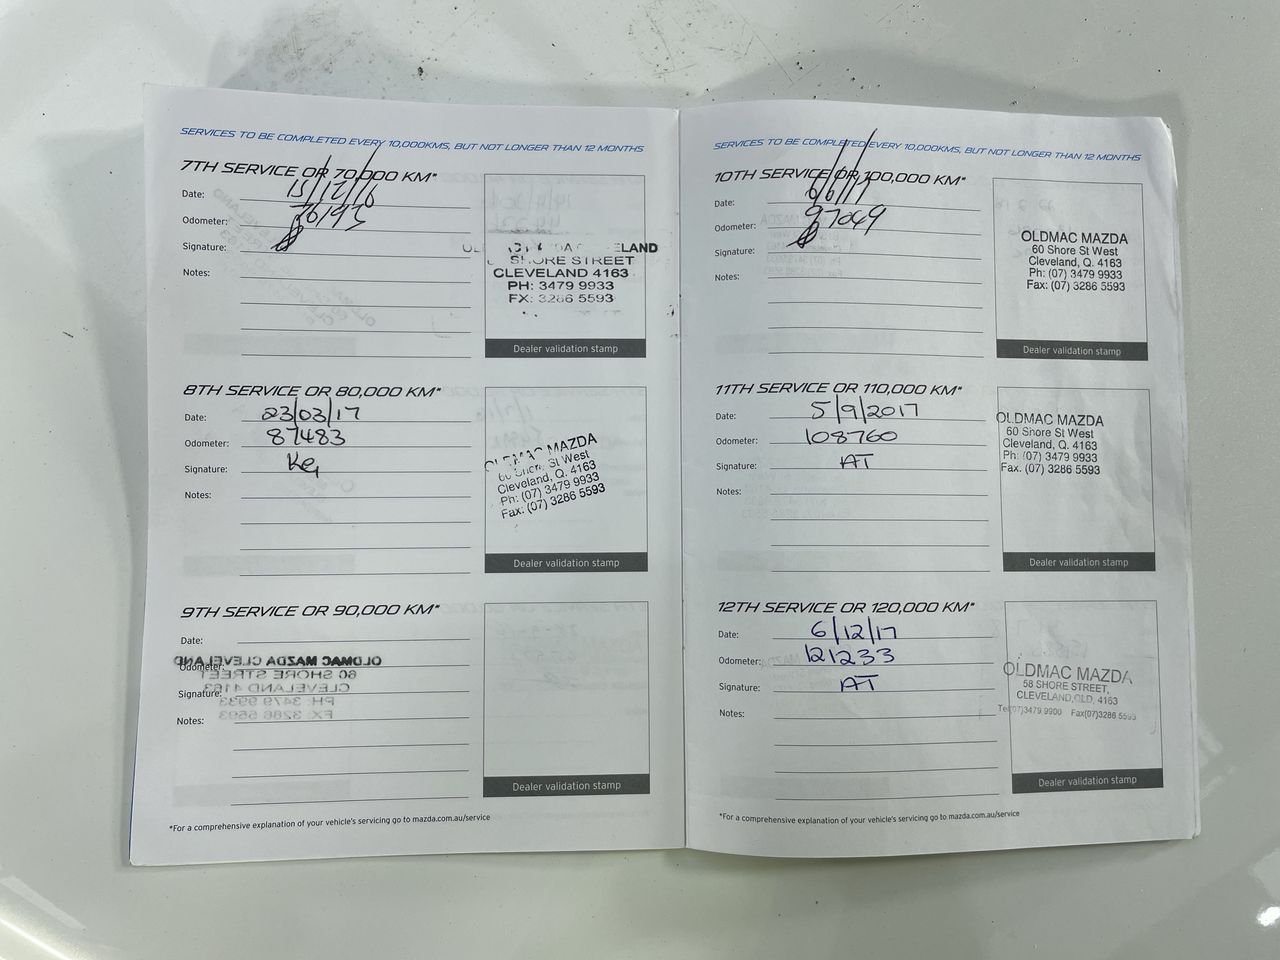 SERVICES TO BE COMPLETED EVERY 10,000KMS, BUT NOT LONGER THAN 12 MONTHS
7TH SERVICE OR 70,000 KM*
Date: 15/12/16
Odometer: 76193
Signature:
Notes:
ELAND
SHORE STREET
CLEVELAND 4163
PH: 3479 9933
FX: 3286 5593
Dealer validation stamp
8TH SERVICE OR 80,000 KM*
Date: 23/03/17
Odometer: 87483
Signature:
Notes:
OLDMAC MAZDA
60 Shore St West
Cleveland, Q. 4163
Ph: (07) 3479 9933
Fax: (07) 3286 5593
Dealer validation stamp
9TH SERVICE OR 90,000 KM*
Date:
Odometer:
Signature:
Notes:
OLDMAC MAZDA CLEVELAND
60 SHORE STREET
CLEVELAND 4163
PH: 3479 9933
FX: 3286 5593
Dealer validation stamp
*For a comprehensive explanation of your vehicle's servicing go to mazda.com.au/service
SERVICES TO BE COMPLETED EVERY 10,000KMS, BUT NOT LONGER THAN 12 MONTHS
10TH SERVICE OR 100,000 KM*
Date: 6/6/17
Odometer: 97049
Signature:
Notes:
OLDMAC MAZDA
60 Shore St West
Cleveland, Q. 4163
Ph: (07) 3479 9933
Fax: (07) 3286 5593
Dealer validation stamp
11TH SERVICE OR 110,000 KM*
Date: 5/9/2017
Odometer: 108760
Signature: AT
Notes:
OLDMAC MAZDA
60 Shore St West
Cleveland, Q. 4163
Ph: (07) 3479 9933
Fax. (07) 3286 5593
Dealer validation stamp
12TH SERVICE OR 120,000 KM*
Date: 6/12/17
Odometer: 121233
Signature: AT
Notes:
OLDMAC MAZDA
58 SHORE STREET,
CLEVELAND, QLD, 4163
Tel(07)3479 9900 Fax(07)3286 5593
Dealer validation stamp
*For a comprehensive explanation of your vehicle's servicing go to mazda.com.au/service